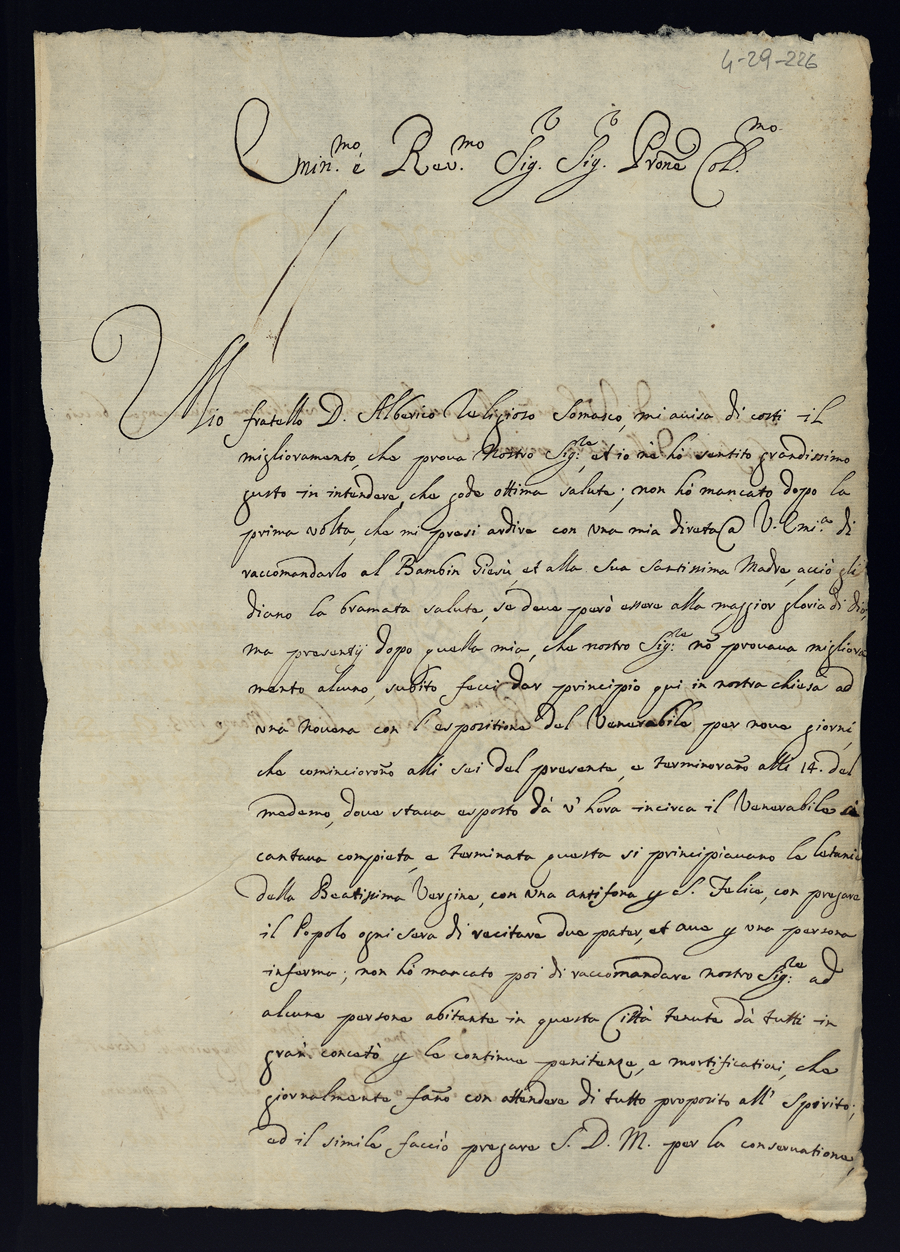 4-29-226
Emin.mo é Rev.mo Sig.r Sig.r Prone Col.mo
Mio fratello D. Alberico Religioso Somasco, mi auisa di costi il
miglioramento, che proua Nostro Sig.re, et io nè hó sentito grandissimo
gusto in intendere, che gode ottima salute; non hó mancato dopo la
prima uolta, che mi presi ardire con una mia direta a V. Em.a di
raccomandarlo al Bambin Giesù, et alla Sua Santissima Madre, acciò gli
diano la bramata salute, se deue però essere alla maggior gloria di Dio,
ma presentij dopo quella mia, che nostro Sig.re nõ prouaua migliora
mento alcuno, subito feci dar principio qui in nostra chiesa ad
una Nouena con l'espositione del Venerabile per noue giorni,
che cominciorõno alli sei del presente, e terminorãno alli 14. del
medemo, doue staua esposto dà u' hora incirca il Venerabile si
cantaua compieta, e terminata questa si principiauano le letanie
della Beatissima Vergine, con una antifona p S. Felice, con pregare
il Popolo ogni sera di recitare due pater, et aue p una persona
inferma; non hò mancato poi di raccomandare nostro Sig.re ad
alcune persone abitante in questa Città tenute dà tutti in
gran concetò p le continue penitenze, e mortificationi, che
giornalmente fãno con attendere di tutto proposito all' Spirito;
ed il simile facciò pregare S. D. M. per la conseruatione,